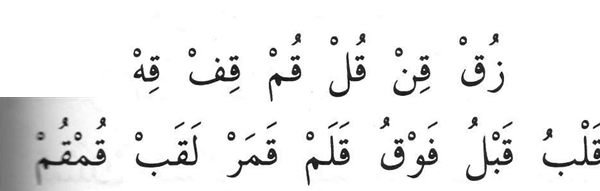 زُقْ قِنْ قُلْ قُمْ قِفْ قِهْ
قَلْبُ قَبْلُ فَوْقُ قَلَمْ قَمَرْ لَقَبْ قُمْقُمْ